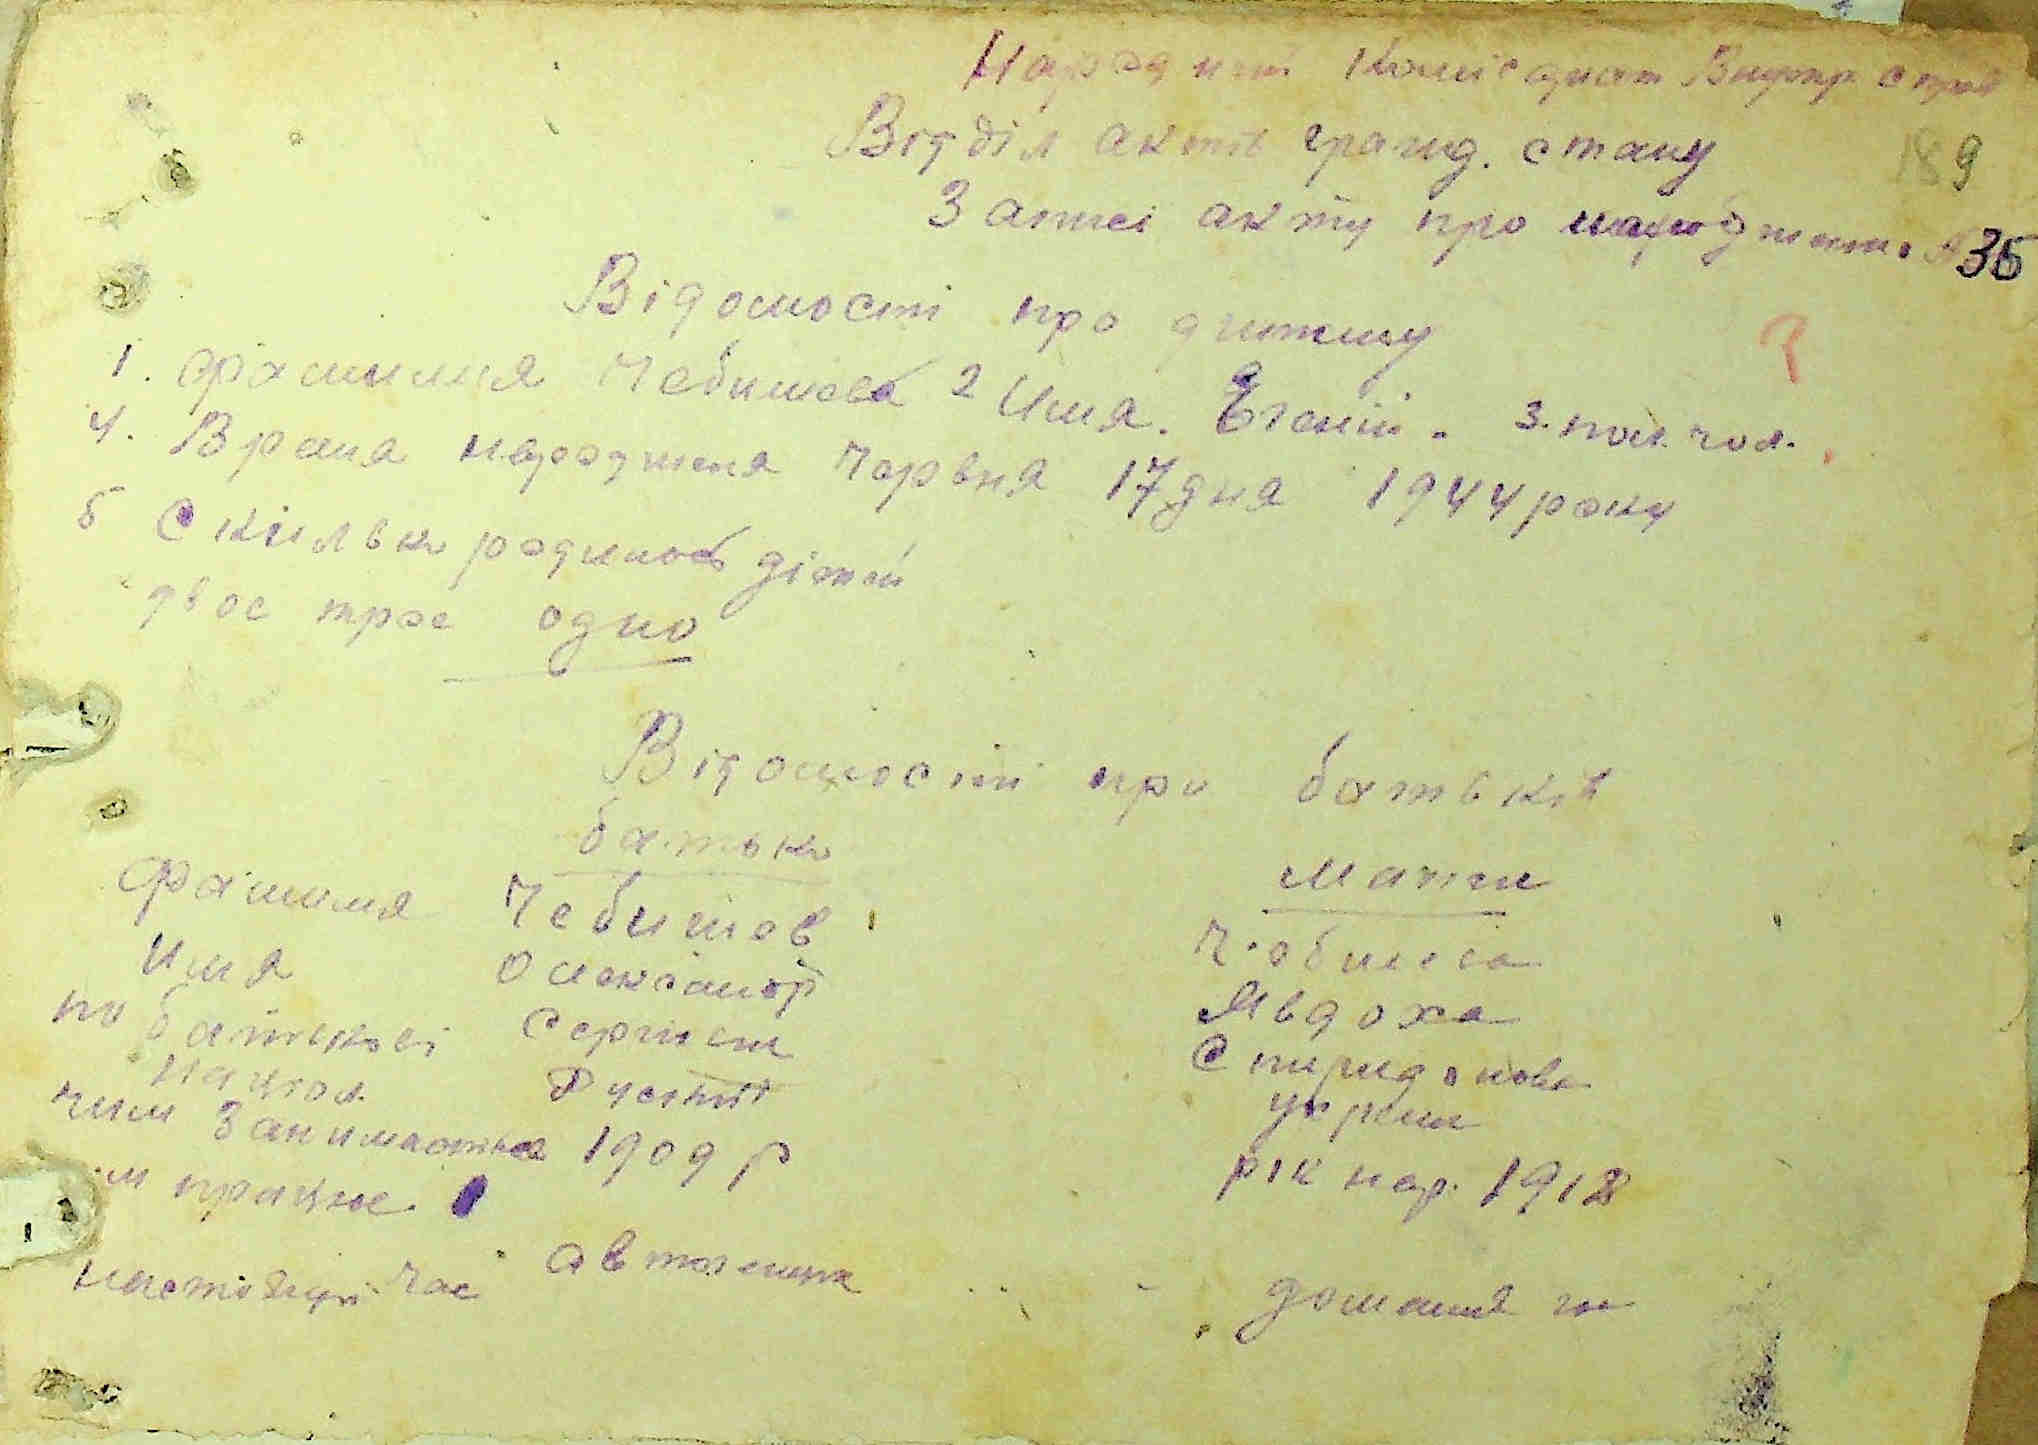 Народний Коміс Внутр справ
Відділ актів гражд. стану
189
Записі акту про народження 35
Відомості про дитину
1. Фамилия Чебишева 2 Имя. Егеній. 3. пол. чол.
4. Врємя народженя Червня 17 дня 1944 року
5 Скильки родилось дітей
двое трое одно
Відомості про батьків
батько
мати
Фамилия Чебишов
Чебишева
Имя Олександр
Явдоха
по батькові Сергієв
Спиридонова
націон. Руский
украин
чим Занимаєтьса 1909 р
рік нар. 1918
працює
настоящий час
домашня